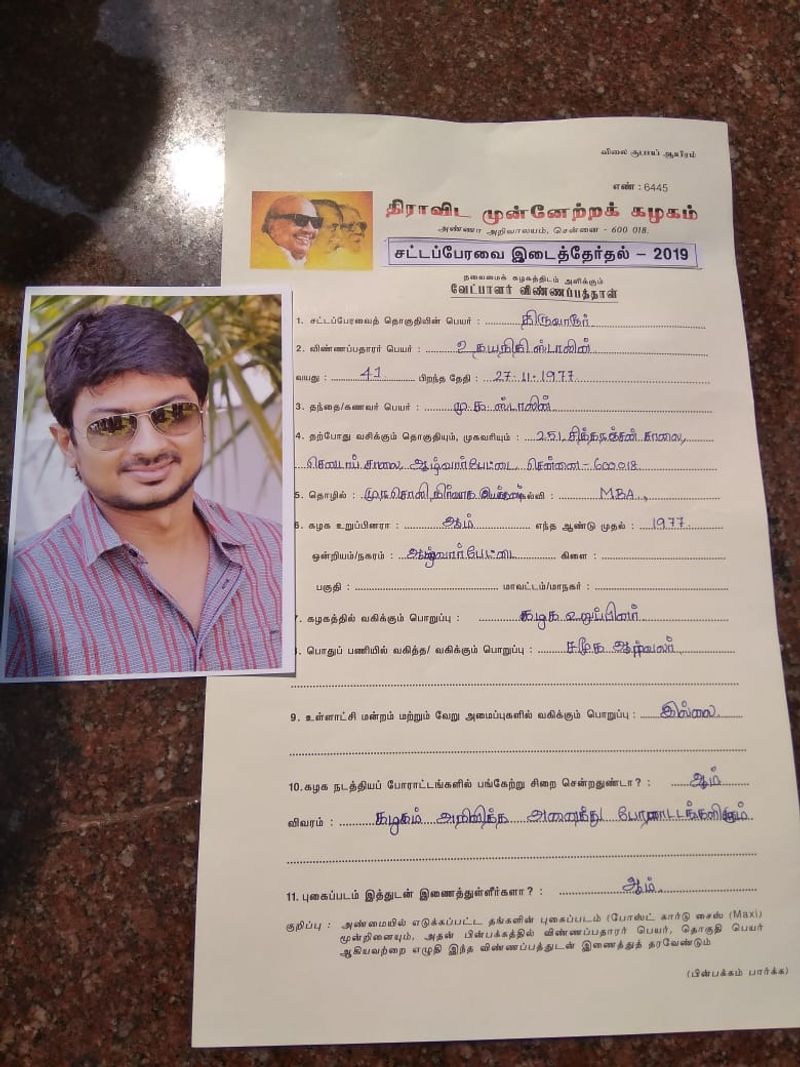 விலை ரூபாய் ஆயிரம்
எண் : 6445
திராவிட முன்னேற்றக் கழகம்
அண்ணா அறிவாலயம், சென்னை - 600 018.
சட்டப்பேரவை இடைத்தேர்தல் – 2019
தலைமைக் கழகத்திடம் அளிக்கும்
வேட்பாளர் விண்ணப்பத்தாள்
1. சட்டப்பேரவைத் தொகுதியின் பெயர் : திருவாரூர்
2. விண்ணப்பதாரர் பெயர் : உதயநிதி ஸ்டாலின்
வயது : 41 பிறந்த தேதி : 27-11-1977
3. தந்தை/கணவர் பெயர் : மு.க.ஸ்டாலின்
4. தற்போது வசிக்கும் தொகுதியும், முகவரியும் : 25/1, சித்தரஞ்சன் சாலை,
செனடாப் சாலை, ஆழ்வார்பேட்டை, சென்னை-600018.
5. தொழில் : முரசொலி நிர்வாக இயக்குனர் கல்வி : MBA.,
6. கழக உறுப்பினரா : ஆம் எந்த ஆண்டு முதல் : 1977
ஒன்றியம்/நகரம் : ஆழ்வார்பேட்டை கிளை :
பகுதி : மாவட்டம்/மாநகர் :
7. கழகத்தில் வகிக்கும் பொறுப்பு : கழக உறுப்பினர்
8. பொதுப் பணியில் வகித்த/ வகிக்கும் பொறுப்பு : சமூக ஆர்வலர்
9. உள்ளாட்சி மன்றம் மற்றும் வேறு அமைப்புகளில் வகிக்கும் பொறுப்பு : இல்லை
10.கழக நடத்தியப் போராட்டங்களில் பங்கேற்று சிறை சென்றதுண்டா? : ஆம்
விவரம் : கழகம் அறிவித்த அனைத்து போராட்டங்களிலும்
11. புகைப்படம் இத்துடன் இணைத்துள்ளீர்களா? : ஆம்
குறிப்பு : அண்மையில் எடுக்கப்பட்ட தங்களின் புகைப்படம் (போஸ்ட் கார்டு சைஸ் (Maxi)
மூன்றினையும், அதன் பின்பக்கத்தில் விண்ணப்பதாரர் பெயர், தொகுதி பெயர்
ஆகியவற்றை எழுதி இந்த விண்ணப்பத்துடன் இணைத்துத் தரவேண்டும்
(பின்பக்கம் பார்க்க)